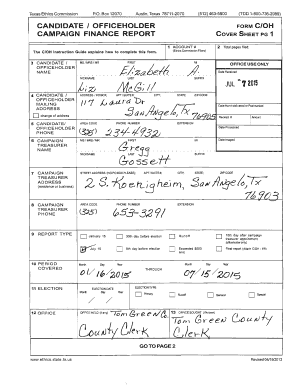 Texas Ethics Commission P.O. Box 12070 Austin, Texas 78711-2070 (512) 463-5800 (TDD 1-800-735-2989)
CANDIDATE / OFFICEHOLDER FORM C/OH
CAMPAIGN FINANCE REPORT COVER SHEET PG 1
The C/OH Instruction Guide explains how to complete this form. 1 ACCOUNT # 2 Total pages filed:
3 CANDIDATE / OFFICEHOLDER NAME MS / MRS / MR FIRST MI
Elizabeth A.
NICKNAME LAST SUFFIX
Liz McGill
OFFICE USE ONLY
Date Received
7 2015
4 CANDIDATE / OFFICEHOLDER MAILING ADDRESS
change of address
ADDRESS / PO BOX; APT / SUITE #; CITY; STATE; ZIP CODE
117 Laura Dr
San Angelo, Tx 76905
Date Hand-delivered or Postmarked
Receipt # Amount
5 CANDIDATE/ OFFICEHOLDER PHONE AREA CODE PHONE NUMBER EXTENSION
(325) 234-4932
Date Processed
6 CAMPAIGN TREASURER NAME MS / MRS / MR FIRST MI
Gregg
NICKNAME LAST SUFFIX
Gossett
Date Imaged
7 CAMPAIGN TREASURER ADDRESS
(residence or business)
STREET ADDRESS (NO PO BOX PLEASE); APT / SUITE #; CITY; STATE; ZIP CODE
2 S. Koenigheim, San Angelo, Tx
76903
8 CAMPAIGN TREASURER PHONE AREA CODE PHONE NUMBER EXTENSION
(325) 653-3291
9 REPORT TYPE January 15 30th day before election Runoff 15th day after campaign treasurer appointment (officeholder only)
July 15 8th day before election Exceeded $500 limit Final report (Attach C/OH - FR)
10 PERIOD COVERED Month Day Year THROUGH Month Day Year
01/16/2015 07/15/2015
11 ELECTION ELECTION DATE ELECTION TYPE
Month Day Year Primary Runoff General Special
12 OFFICE OFFICE HELD (if any) Tom Green Co.
County Clerk
13 OFFICE SOUGHT (if known)
Tom Green County
Clerk
GO TO PAGE 2
www.ethics.state.tx.us